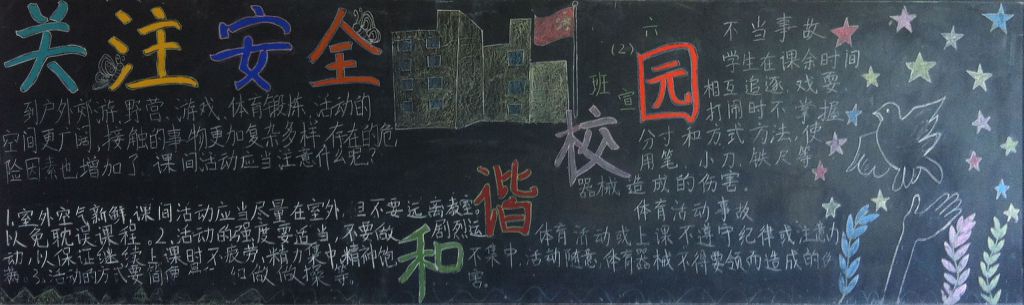 关注安全
到户外郊游、野营、游戏、体育锻炼、活动的
空间更广阔,接触的事物更加复杂多样,存在的危
险因素也增加了。课间活动应当注意什么呢?
1.室外空气新鲜,课间活动应当尽量在室外,且不要远离教室,
以免耽误课程。2.活动的强度要适当,不要做剧烈运
动,以保证继续上课时不疲劳,精力集中,精神饱
满。3.活动的方式要简单 做做操等。
和谐校园
六
(2)
班
宣
不当事故
学生在课余时间
相互追逐、戏耍
打闹时不掌握
分寸和方式方法,使
用笔、小刀、铁尺等
器械,造成的伤害。
体育活动事故
体育活动或上课不遵守纪律或注意力
不集中,活动随意,体育器械不得要领的造成的伤
害。